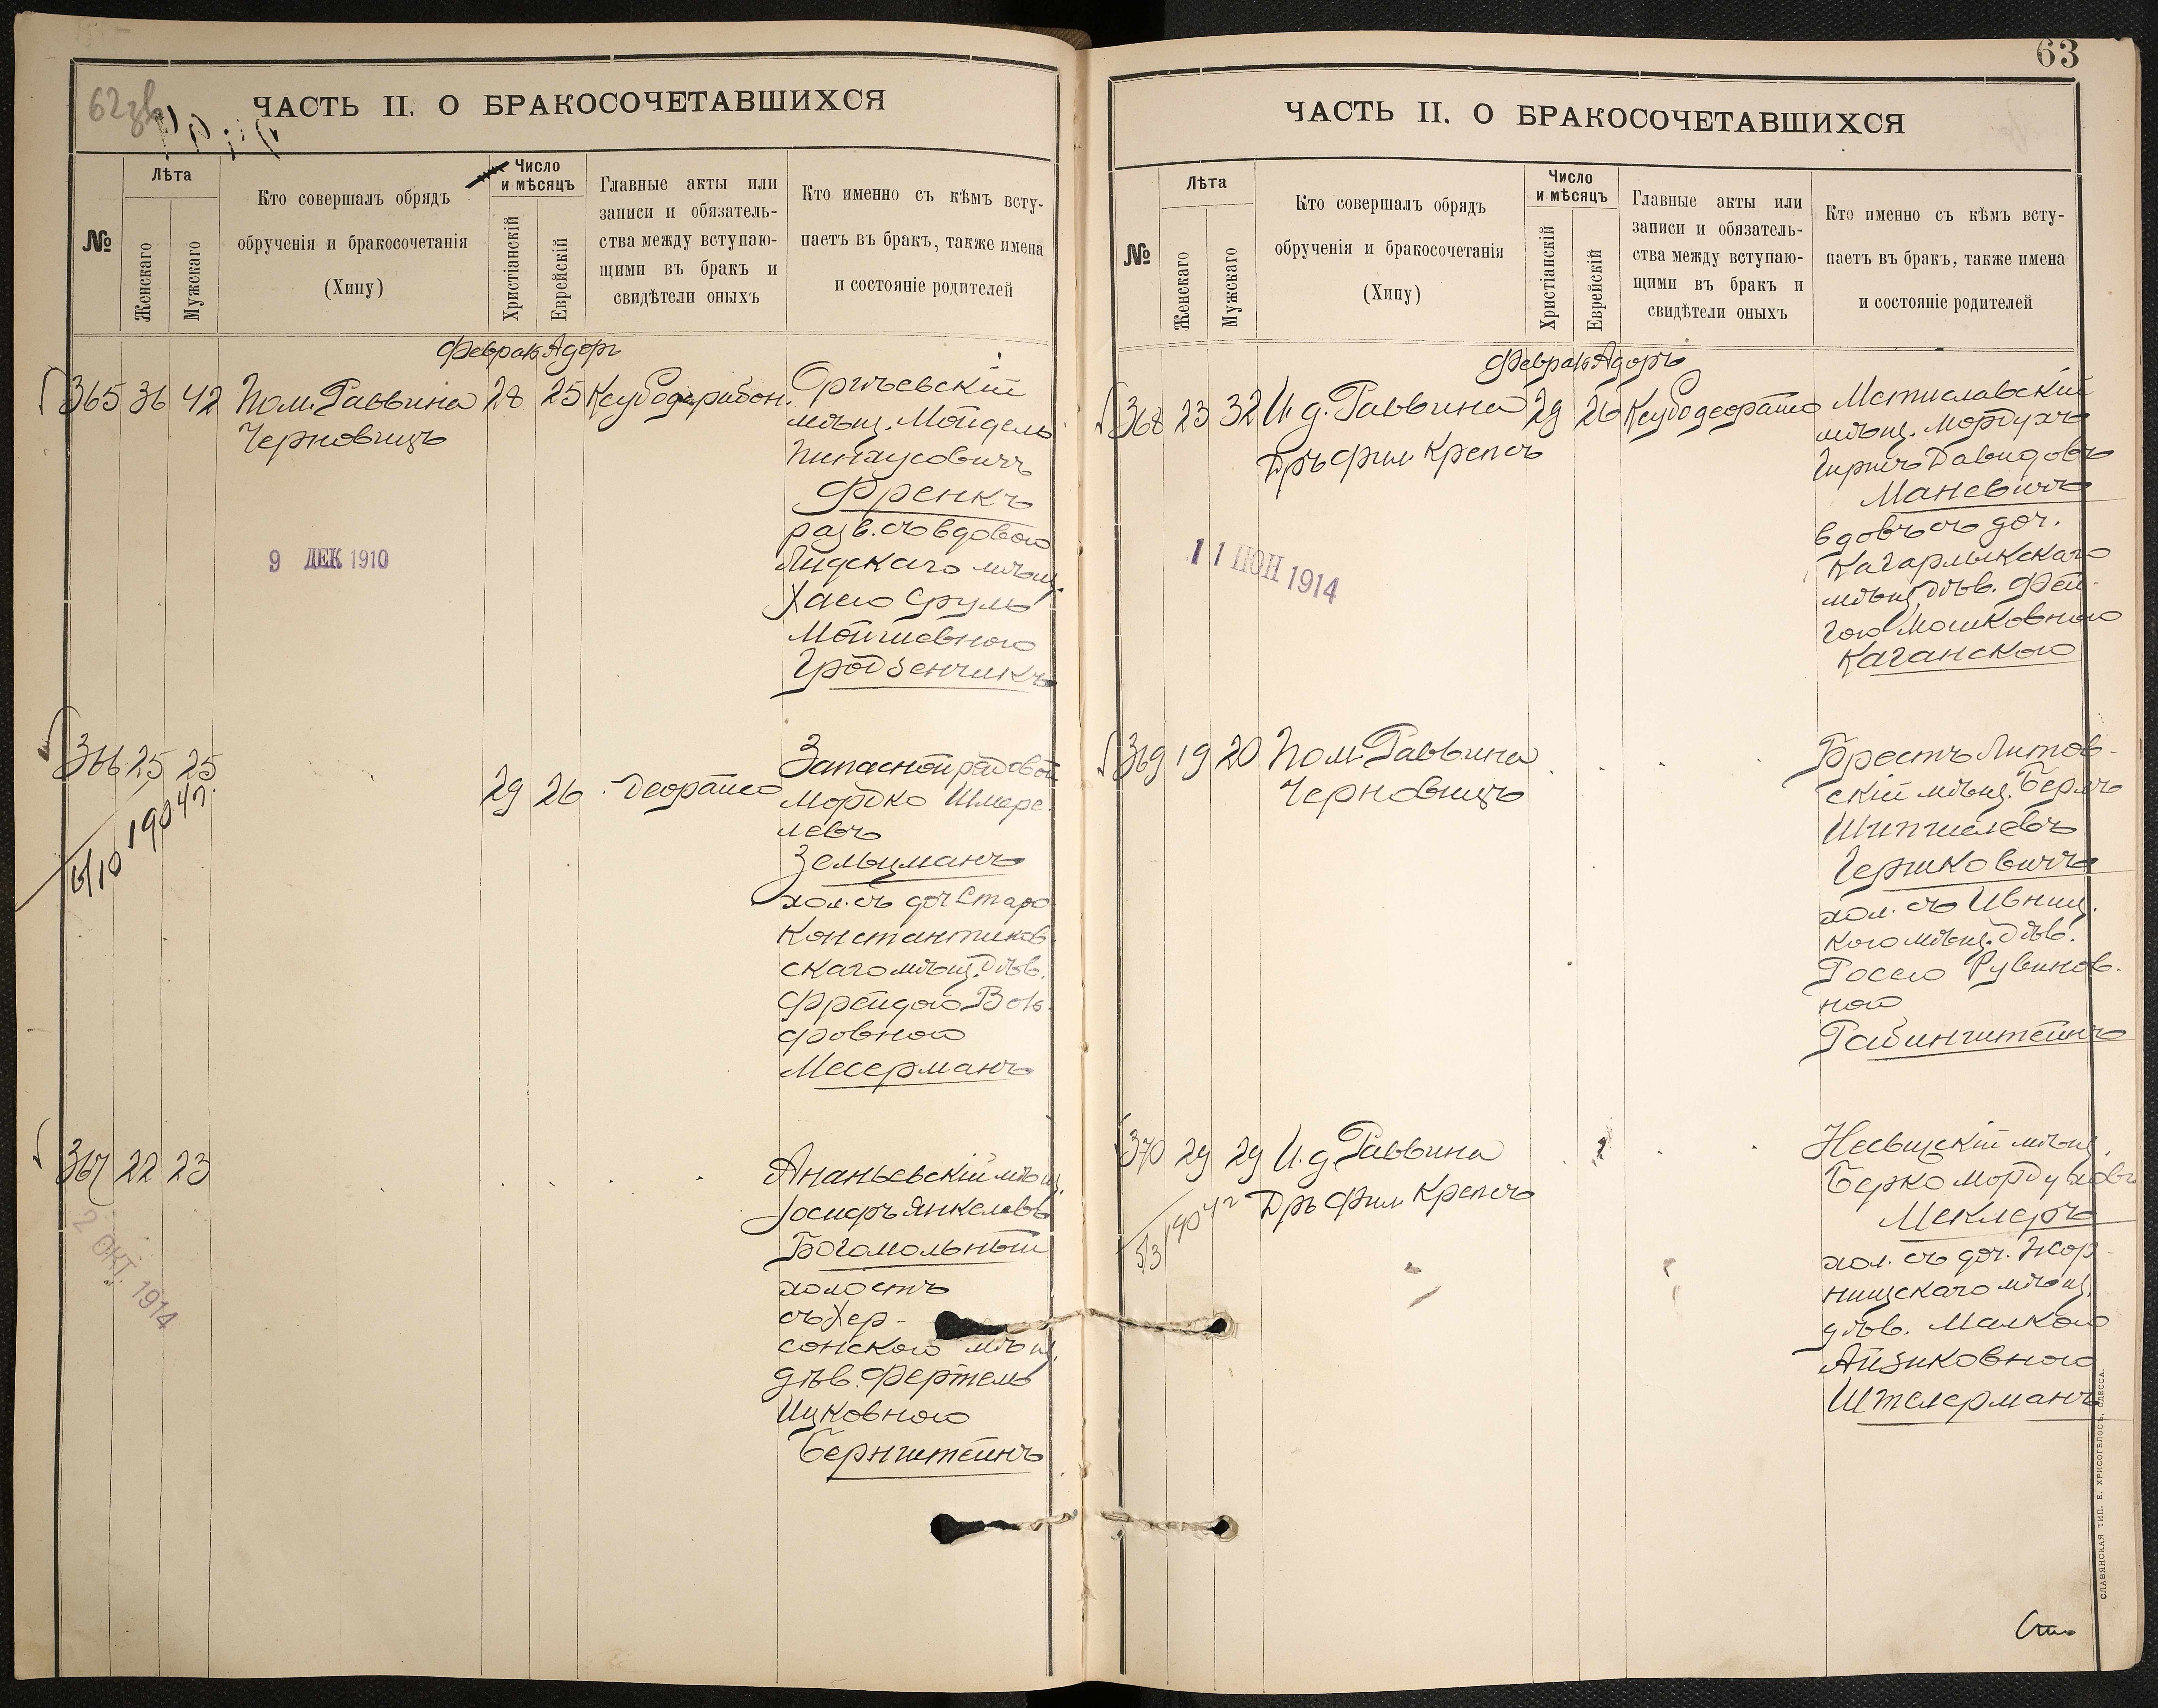 62 зв
ЧАСТЬ II. О БРАКОСОЧЕТАВШИХСЯ
№
Лѣта
Женскаго
Мужскаго
Кто совершалъ обрядъ
обрученія и бракосочетанія
(Хипу)
Число
и мѣсяцъ
Христіанскій
Еврейскій
Главные акты или
записи и обязатель-
ства между вступаю-
щими въ бракъ и
свидѣтели оныхъ
Кто именно съ кѣмъ всту-
паетъ въ бракъ, также имена
и состояніе родителей
Февраль Адоръ
365 36 42 Пом. Раввина 28 25
Черновицъ
мѣщ. Мойдель
Пинхусовичъ
Френкъ
разв. съ вдовою
Лидскаго мѣщ.
Хаею Сруль
Мойшевною
Гройзенчикъ
9 ДЕК 1910
366 25 25 29 26 Деорайсо
Запасной рядовой
Мордко Шмере-
левъ
Зельцманъ
хол. съ доч. Старо
Константинов
скаго мѣщ. дѣв.
Фрейдою Воль-
фовною
Месерманъ
6/10 1904 г.
367 22 23
Ананьевскій мѣщ.
Іосифъ Янкелевъ
Богомольный
холостъ
съ Хер-
сонскою мѣщ.
дѣв. Фертель
Ицковною
Бернштейнъ
2 ОКТ. 1914
63
ЧАСТЬ II. О БРАКОСОЧЕТАВШИХСЯ
№
Лѣта
Женскаго
Мужскаго
Кто совершалъ обрядъ
обрученія и бракосочетанія
(Хипу)
Число
и мѣсяцъ
Христіанскій
Еврейскій
Главные акты или
записи и обязатель-
ства между вступаю-
щими въ бракъ и
свидѣтели оныхъ
Кто именно съ кѣмъ всту-
паетъ въ бракъ, также имена
и состояніе родителей
Февраль Адоръ
368 23 32 И. д. Раввина 29 26 Ксубодеорайсо
Дръ Фил Крепсъ
Мстиславскій
мѣщ. Мордухъ
Гиршъ Давидовъ
Маневичъ
вдовъ съ доч.
Кагарлыкскаго
мѣщ. дѣв. Фей-
гою Мошковною
Каганскою
11 ІЮН 1914
369 19 20 Пом. Раввина
Черновицъ
Брестъ Литов-
скій мѣщ. Берлъ
Шипшелевъ
Гершковичъ
хол. съ Ивниц.
кою мѣщ. дѣв.
Росею Рувинов-
ной
Рабинштейнъ
370 29 29 И. д. Раввина
Дръ Фил Крепсъ
Несвижскій мѣщ.
Берко Мордуховъ
Меклеръ
хол. съ доч. Жор-
нищскаго мѣщ.
дѣв. Малкою
Айзиковною
Штелерманъ
5/3 1904 г
СЛАВЯНСКАЯ ТИП. Е. ХРИСОГЕЛОСЪ, ОДЕССА.